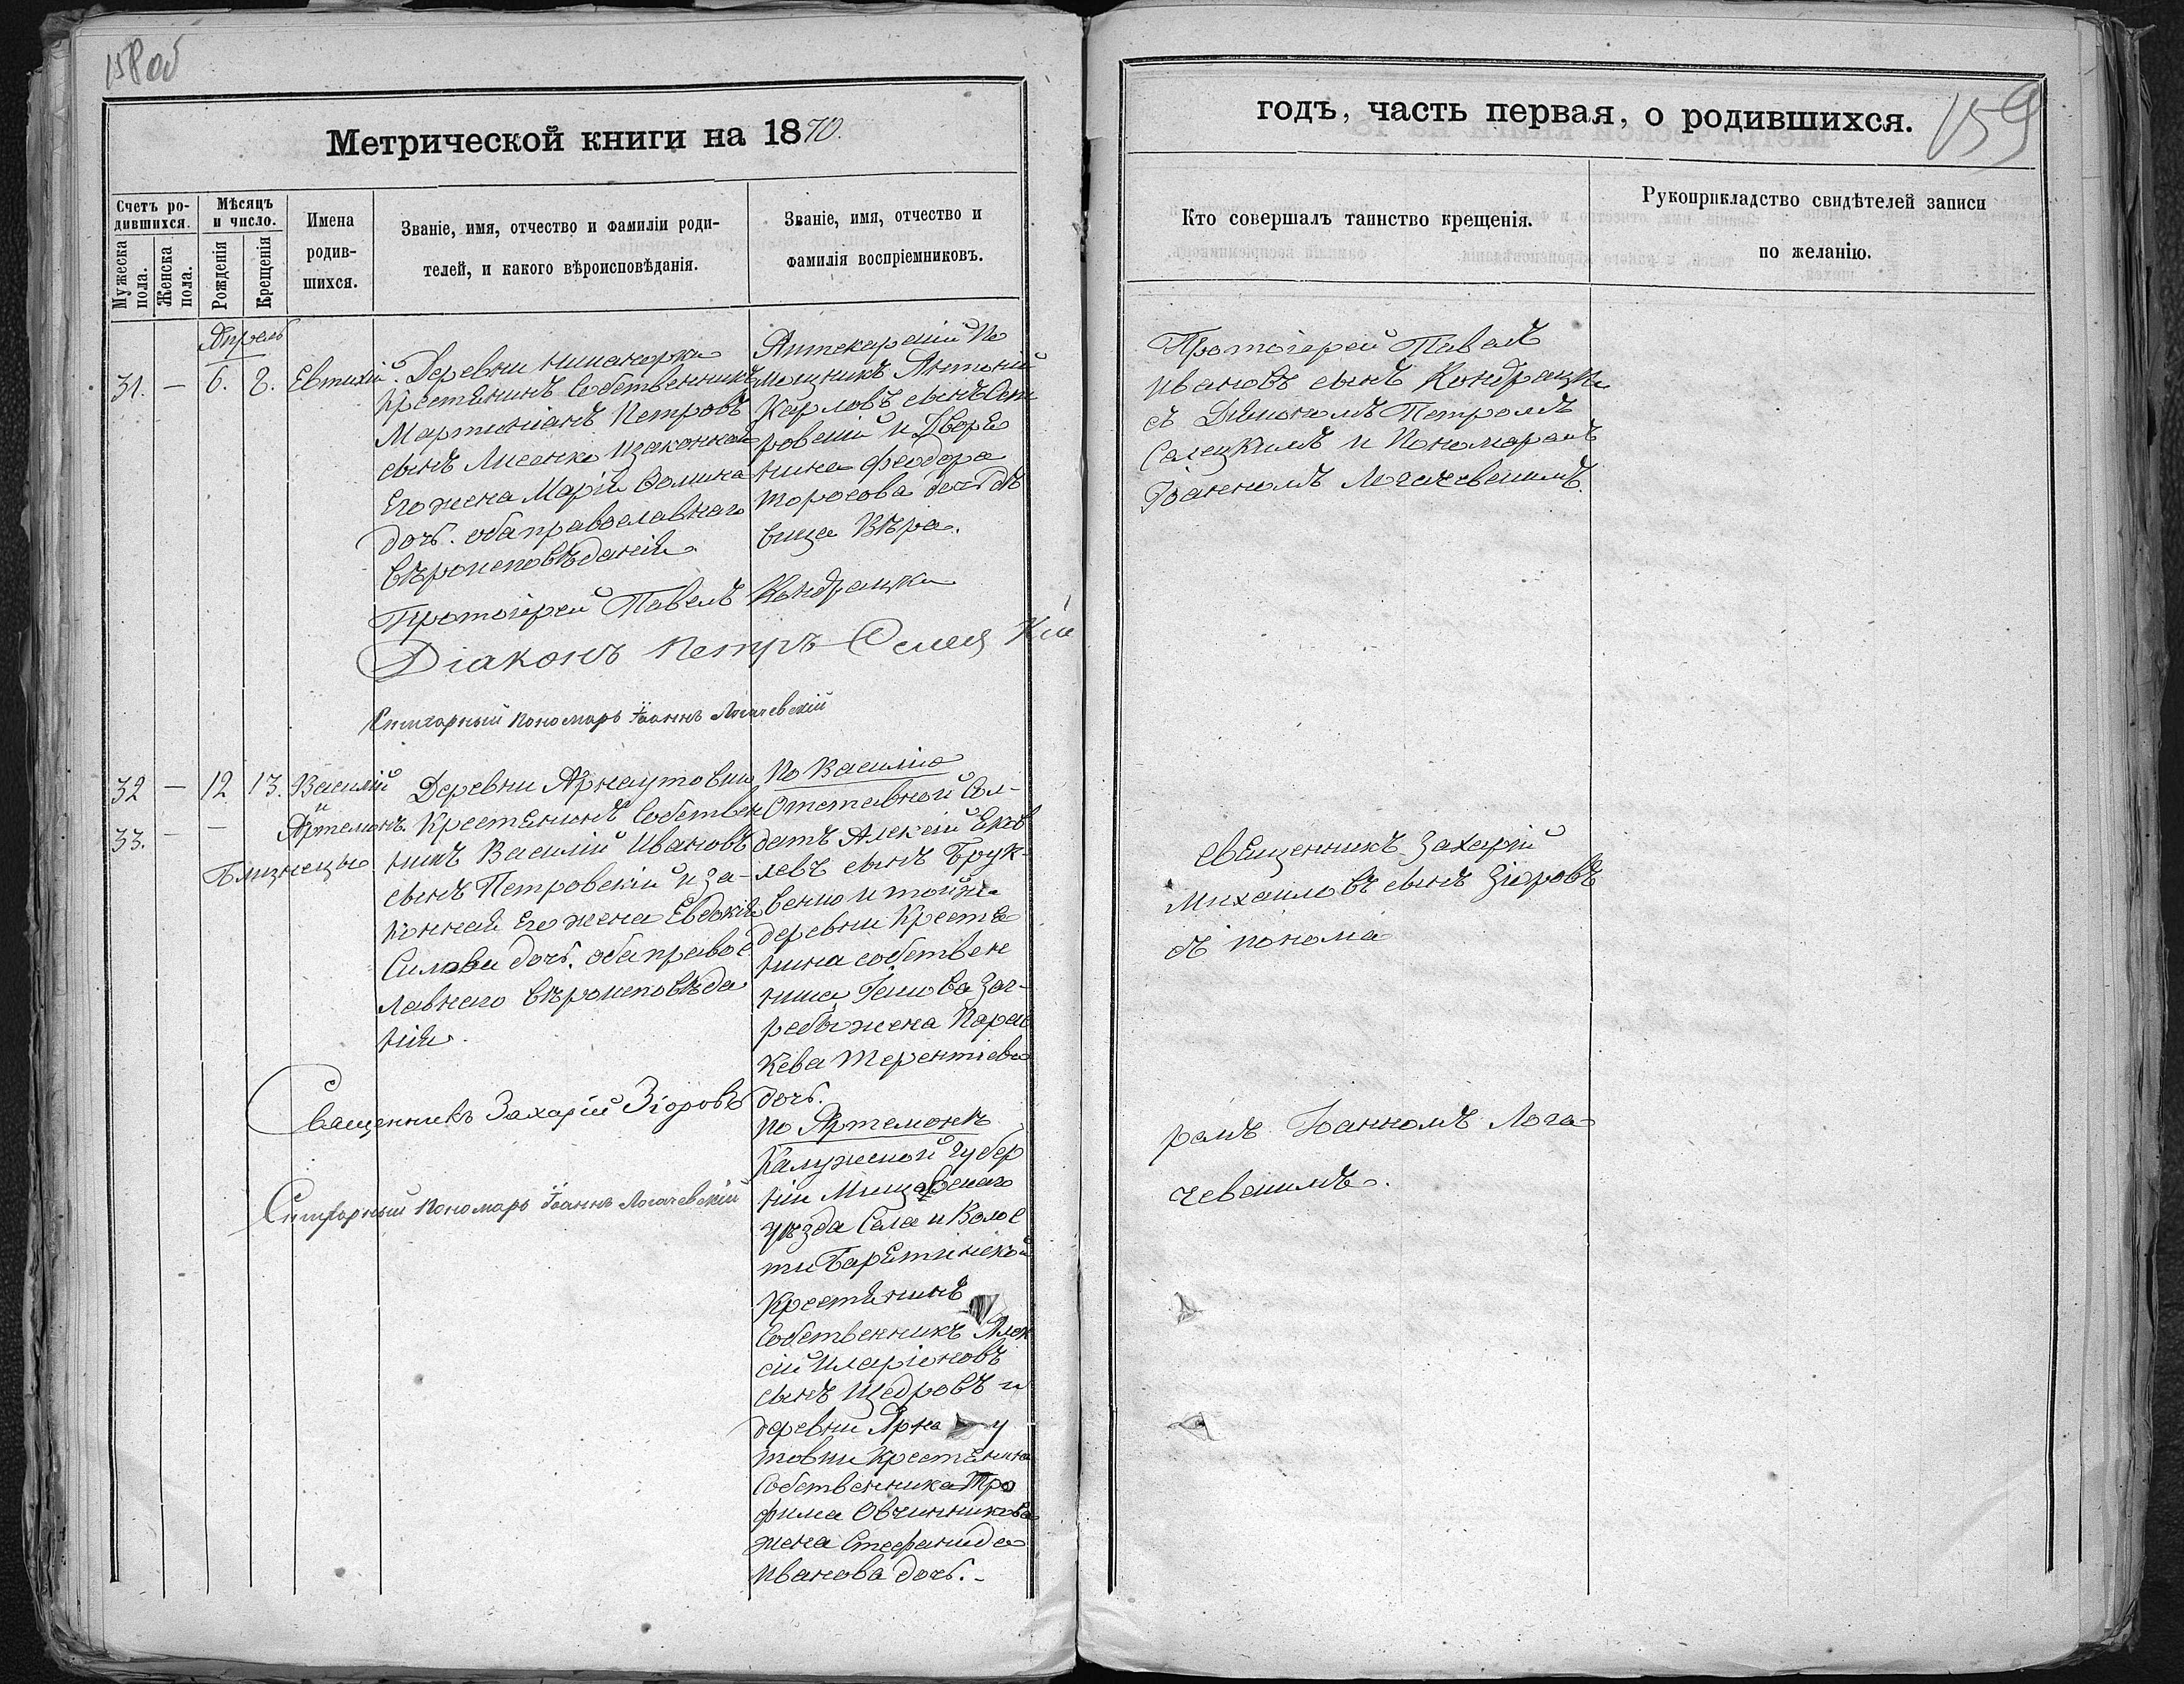 158 об
Метрической книги на 1870.
Счетъ родившихся.
Мужеска пола.
Женска пола.
Мѣсяцъ и число.
Рожденія
Крещенія
Имена родившихся.
Званіе, имя, отчество и фамиліи роди-
телей, и какого вѣроисповѣданія.
Званіе, имя, отчество и
фамилія воспріемниковъ.
Апрель
31. — 6. 8. Евтихій.
Деревни
Крестянинъ Собственникъ
Мартиніанъ Петровъ
сынъ Лисенко изаконная
Его жена Марія Фомина
дочь. оба православнаго
вѣроисповѣданія.
Аптекарскій По
мощникъ Антоній
Карловъ сынъ
ровскій и Дворя
нина Феодора
Торосова дочь дѣ
вица Вѣра.
Протоіерей Павелъ Кондрацки
Діаконъ Петръ Селецкій
Стихарный Пономарь Іоаннъ Логачевскій
32 — 12. 13. Василій
и
33. — — Артемонъ.
Близнецы
Деревни Арнаутовки
Крестянинъ Собствен
никъ Василій Ивановъ
сынъ Петровскій и за-
конная Его жена Евдокія
Силова дочь. оба правос
лавнаго вѣроисповѣда
нія.
Священникъ Захарій Зіоровъ
Стихарный Пономарь Іоаннъ Логачевскій
По Василію
Отставной Сол-
датъ Алексій Яков
левъ сынъ Брук-
венко и тойже
деревни Крестя
нина собствен
ника Заг-
ребы жена Парас
кева Терентіева
дочь.
По Артемонѣ
Калужской губер
ніи Мещовскаго
уѣзда Села и Волос
ти Барятинской
Крестянинъ
Собственникъ Алек
сій Иларіоновъ
сынъ Щедровъ и
деревни Арнау
товки Крестянина
Собственника Тро
фима Овчинникова
жена Стефанида
Иванова дочь.
годъ, часть первая, о родившихся.
159
Кто совершалъ таинство крещенія.
Рукоприкладство свидѣтелей записи
по желанію.
Протоіерей Павелъ
Ивановъ сынъ Кондрацки
съ Діакономъ Петромъ
Селецкимъ и Пономаремъ
Іоанномъ Логачевскимъ.
Священникъ Захарій
Михаиловъ сынъ Зіоровъ
съ понома
ремъ Іоанномъ Лога-
чевскимъ.